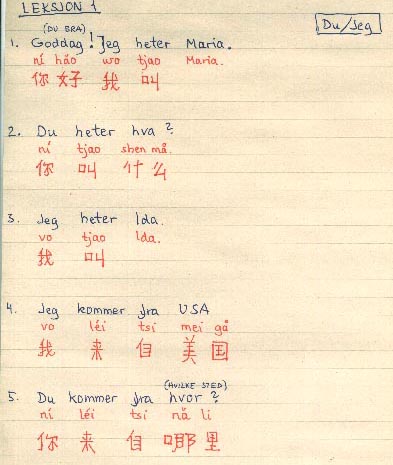 LEKSJON 1
Du/Jeg
(DU BRA)
1. Goddag! Jeg heter Maria.
ní háo wo tjao Maria.
你 好 我 叫
2. Du heter hva?
ní tjao shen må.
你 叫 什 么
3. Jeg heter Ida.
vo tjao Ida.
我 叫
4. Jeg kommer fra USA
vo léi tsi mei gå
我 来 自 美 国
(HVILKE STED)
5. Du kommer fra hvor?
ní léi tsi nå li
你 来 自 哪 里